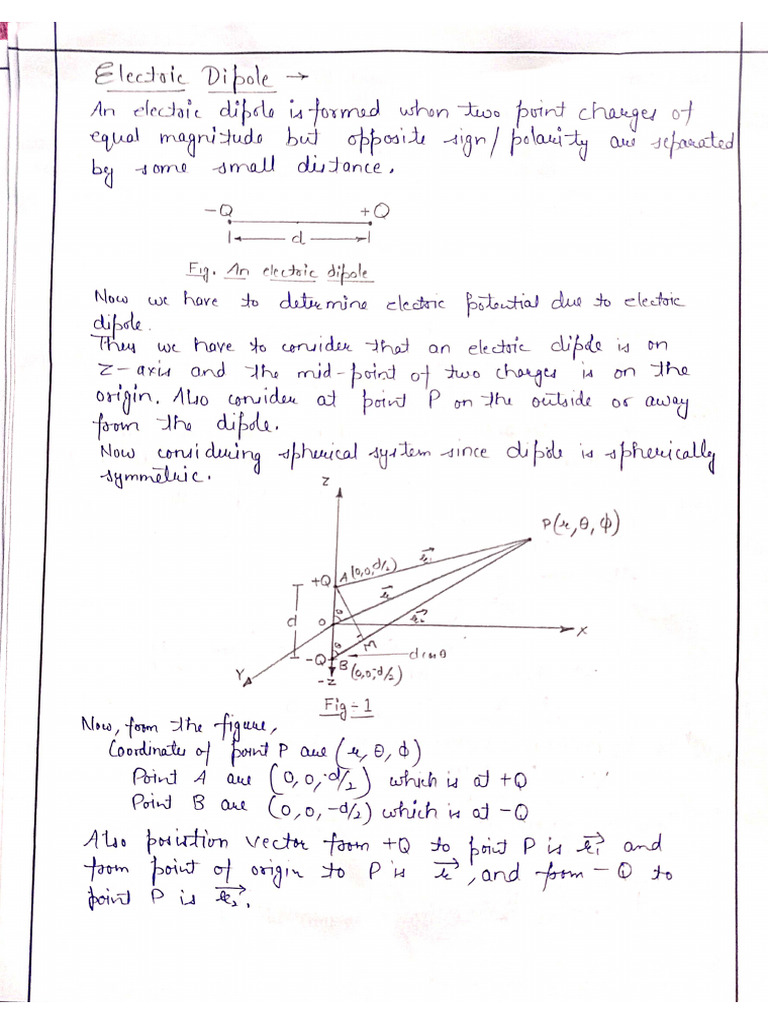 Electric Dipole →
An electric dipole is formed when two point charges of
equal magnitude but opposite sign/polarity are separated
by some small distance.
-Q +Q
d
Fig. An electric dipole
Now we have to determine electric potential due to electric
dipole.
They we have to consider that an electric dipole is on
Z-axis and the mid-point of two charges is on the
origin. Also consider at point P on the outside or away
from the dipole.
Now considering spherical system since dipole is spherically
symmetric.
Z
P(r, θ, ϕ)
+Q A(0,0,d/2) r⃗₁
r⃗
d O θ r⃗₂
X
θ M
-Q B d cos θ
Y -Z (0,0,-d/2)
Fig-1
Now, from the figure,
Coordinates of point P are (r, θ, ϕ)
Point A are (0, 0, d/2) which is at +Q
Point B are (0, 0, -d/2) which is at -Q
Also posistion vector from +Q to point P is r⃗₁ and
from point of origin to P is r⃗, and from -Q to
point P is r⃗₂.